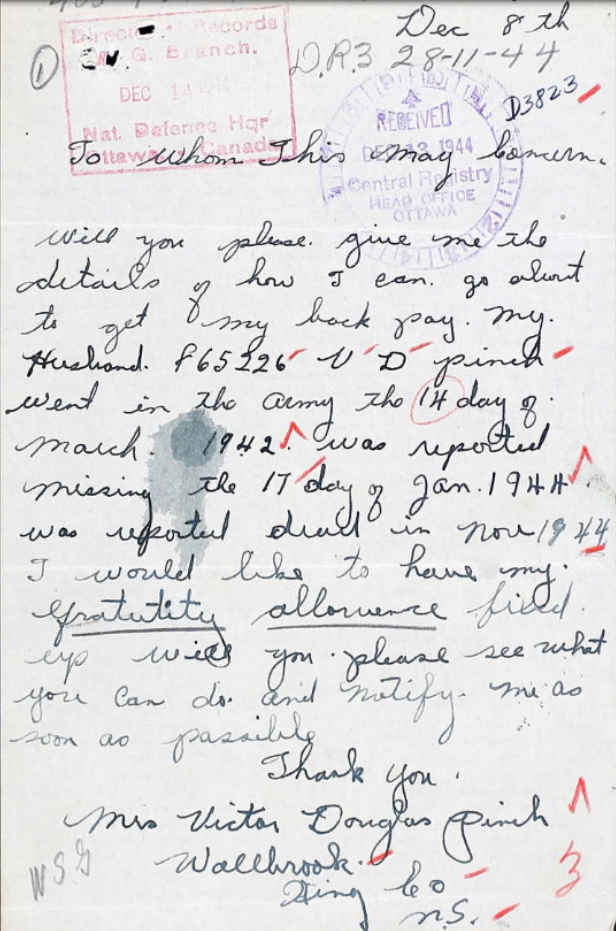 Dec 8th
Director of Records
G. Branch.
DEC 14
Nat. Defence Hqr
Ottawa, Canada
1
D.R.3 28-11-44
D3823
RECEIVED
DEC 13 1944
Central Registry
HEAD OFFICE
OTTAWA
To whom This May Concern.
Will you please. give me the
details of how I can. go about
to get my back pay. My.
Husband. F65226 V D pinch
went in the army the 14 day of.
March. 1942. was reported
missing the 17 day of Jan. 1944
was reported dead in Nov 1944
I would like to have my.
Gratutity allowence fixed.
up will you. please see what
you can do. and notify. me as
soon as possible
Thank you.
Mrs Victor Douglas Pinch
Wallbrook.
King Co
N.S.
WSG
3